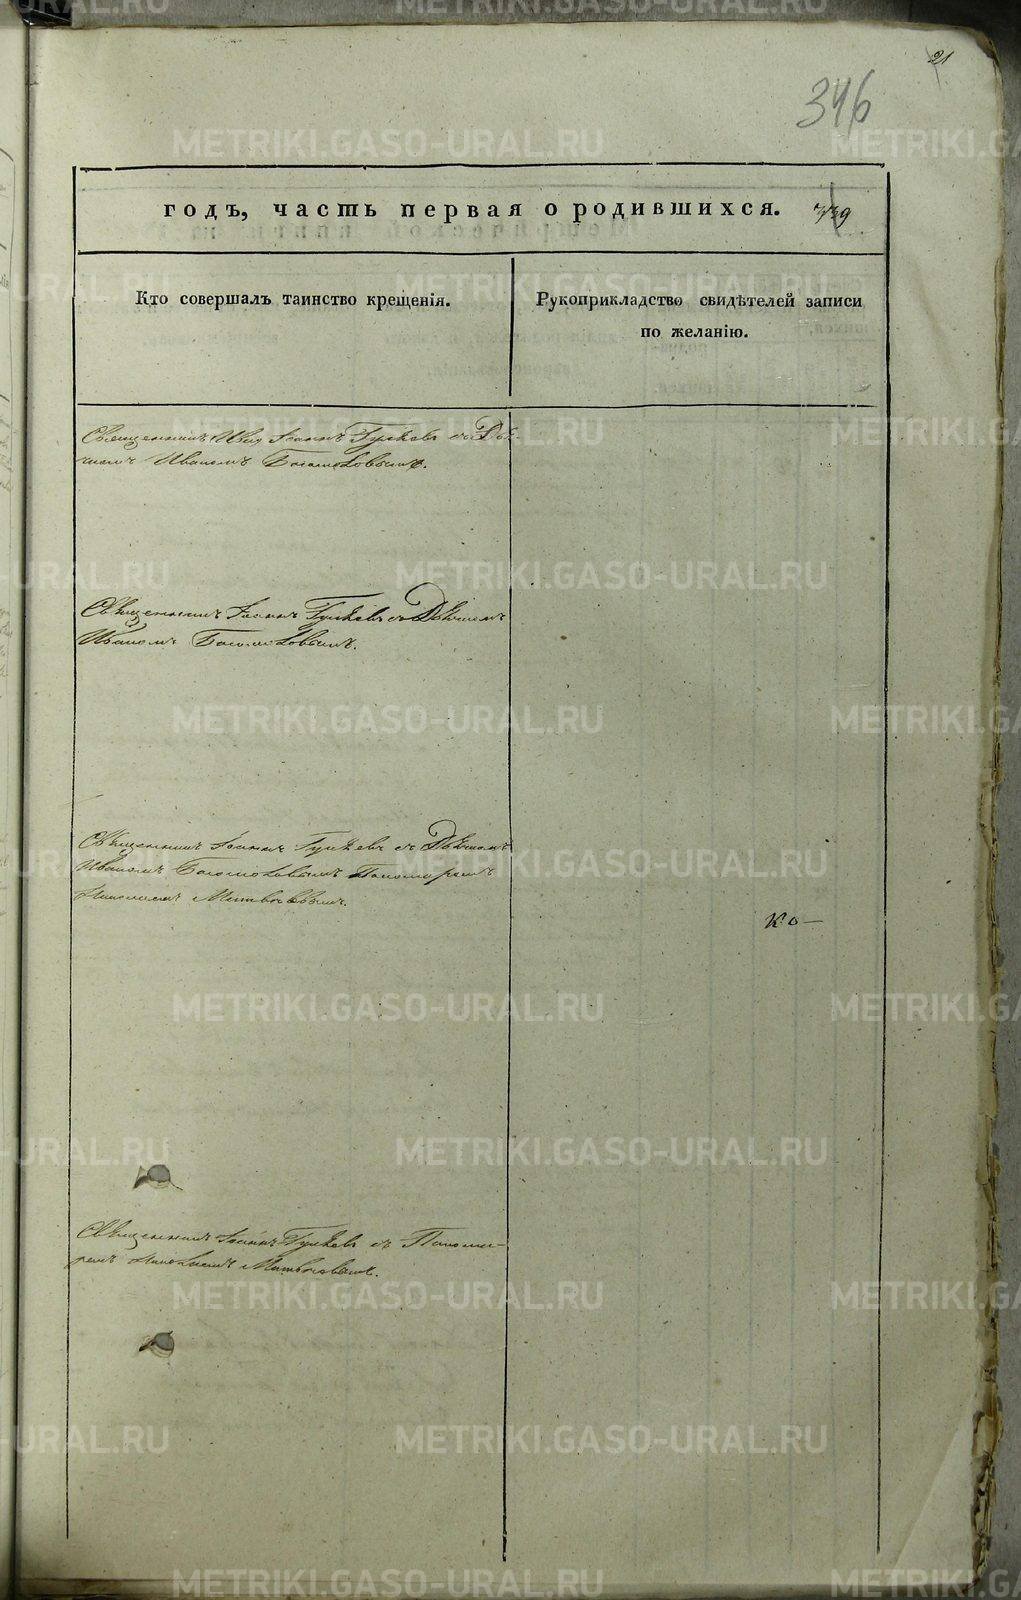 21
346
годъ, часть первая о родившихся. 739
Кто совершалъ таинство крещенія.
Рукоприкладство свидѣтелей записи
по желанію.
Священникъ Іоаннъ съ Дья-
Иваномъ Богомоловымъ.
Священникъ Іоаннъ съ Дьячкомъ
Иваномъ Богомоловымъ.
Священникъ Іоаннъ съ Дьячкомъ
Иваномъ Богомоловымъ Пономаремъ
Николаемъ
Ко—
Священникъ Іоаннъ съ Понома-
ремъ Николаемъ
METRIKI.GASO-URAL.RU